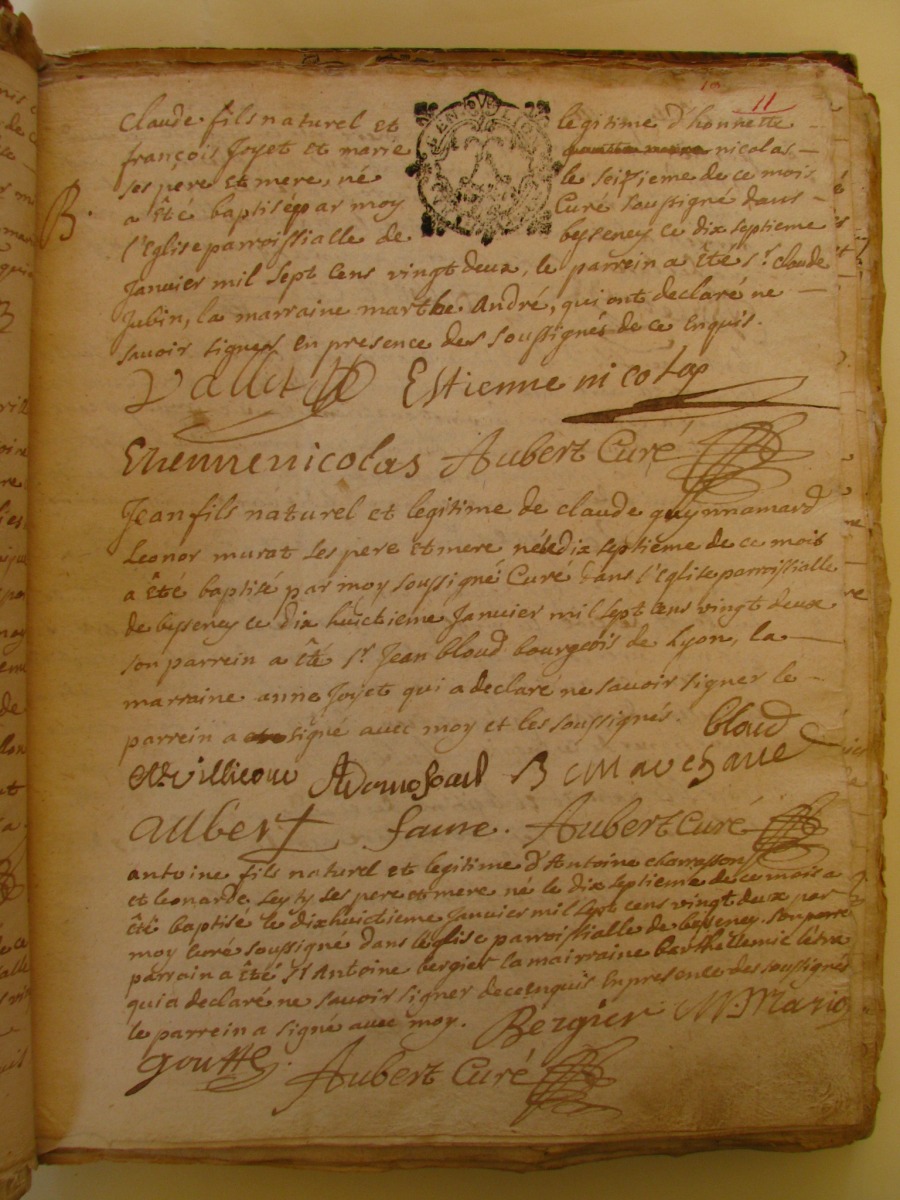 11
claude fils naturel et légitime d'honnette
françois Joyet et marie nicolas
ses père et mere, né le seisieme de ce mois
B.
a êté baptisé par moy Curé soussigné dans
l'Eglise parroissialle de besseney ce dix septieme
Janvier mil sept cens vingt deux, le parrein a êté sr. claude
Jubin, la marraine marthe André, qui ont declaré ne
savoir signer en presence des soussignés de ce enquis.
Vallet Estienne nicolas
Etienne nicolas Aubert Curé
Jean fils naturel et legitime de claude
Leonor murat ses pere et mere né le dix septieme de ce mois
a êté baptisé par moy soussigné Curé dans l'Eglise parroissialle
de besseney ce dix huictieme Janvier mil sept cens vingt deux
son parrein a êté sr. Jean bloud bourgeois de Lyon, la
marraine anne Joyet qui a declaré ne savoir signer le
parrein a signé avec moy et les soussignés. bloud
aubert faure. Aubert Curé
antoine fils naturel et legitime d'Antoine charasson
et leonarde ses pere et mere né le dix septieme de ce mois a
êté baptisé le dixhuictieme Janvier mil sept cens vingt deux par
moy curé soussigné dans leglise parroissialle de besseney. son
parrain a êté sr Antoine bergier la mairraine barthellemie
qui a declaré ne savoir signer de ce enquis en presence des soussignés
le parrein a signé avec moy. Bergier M. Mario
goutte. Aubert Curé